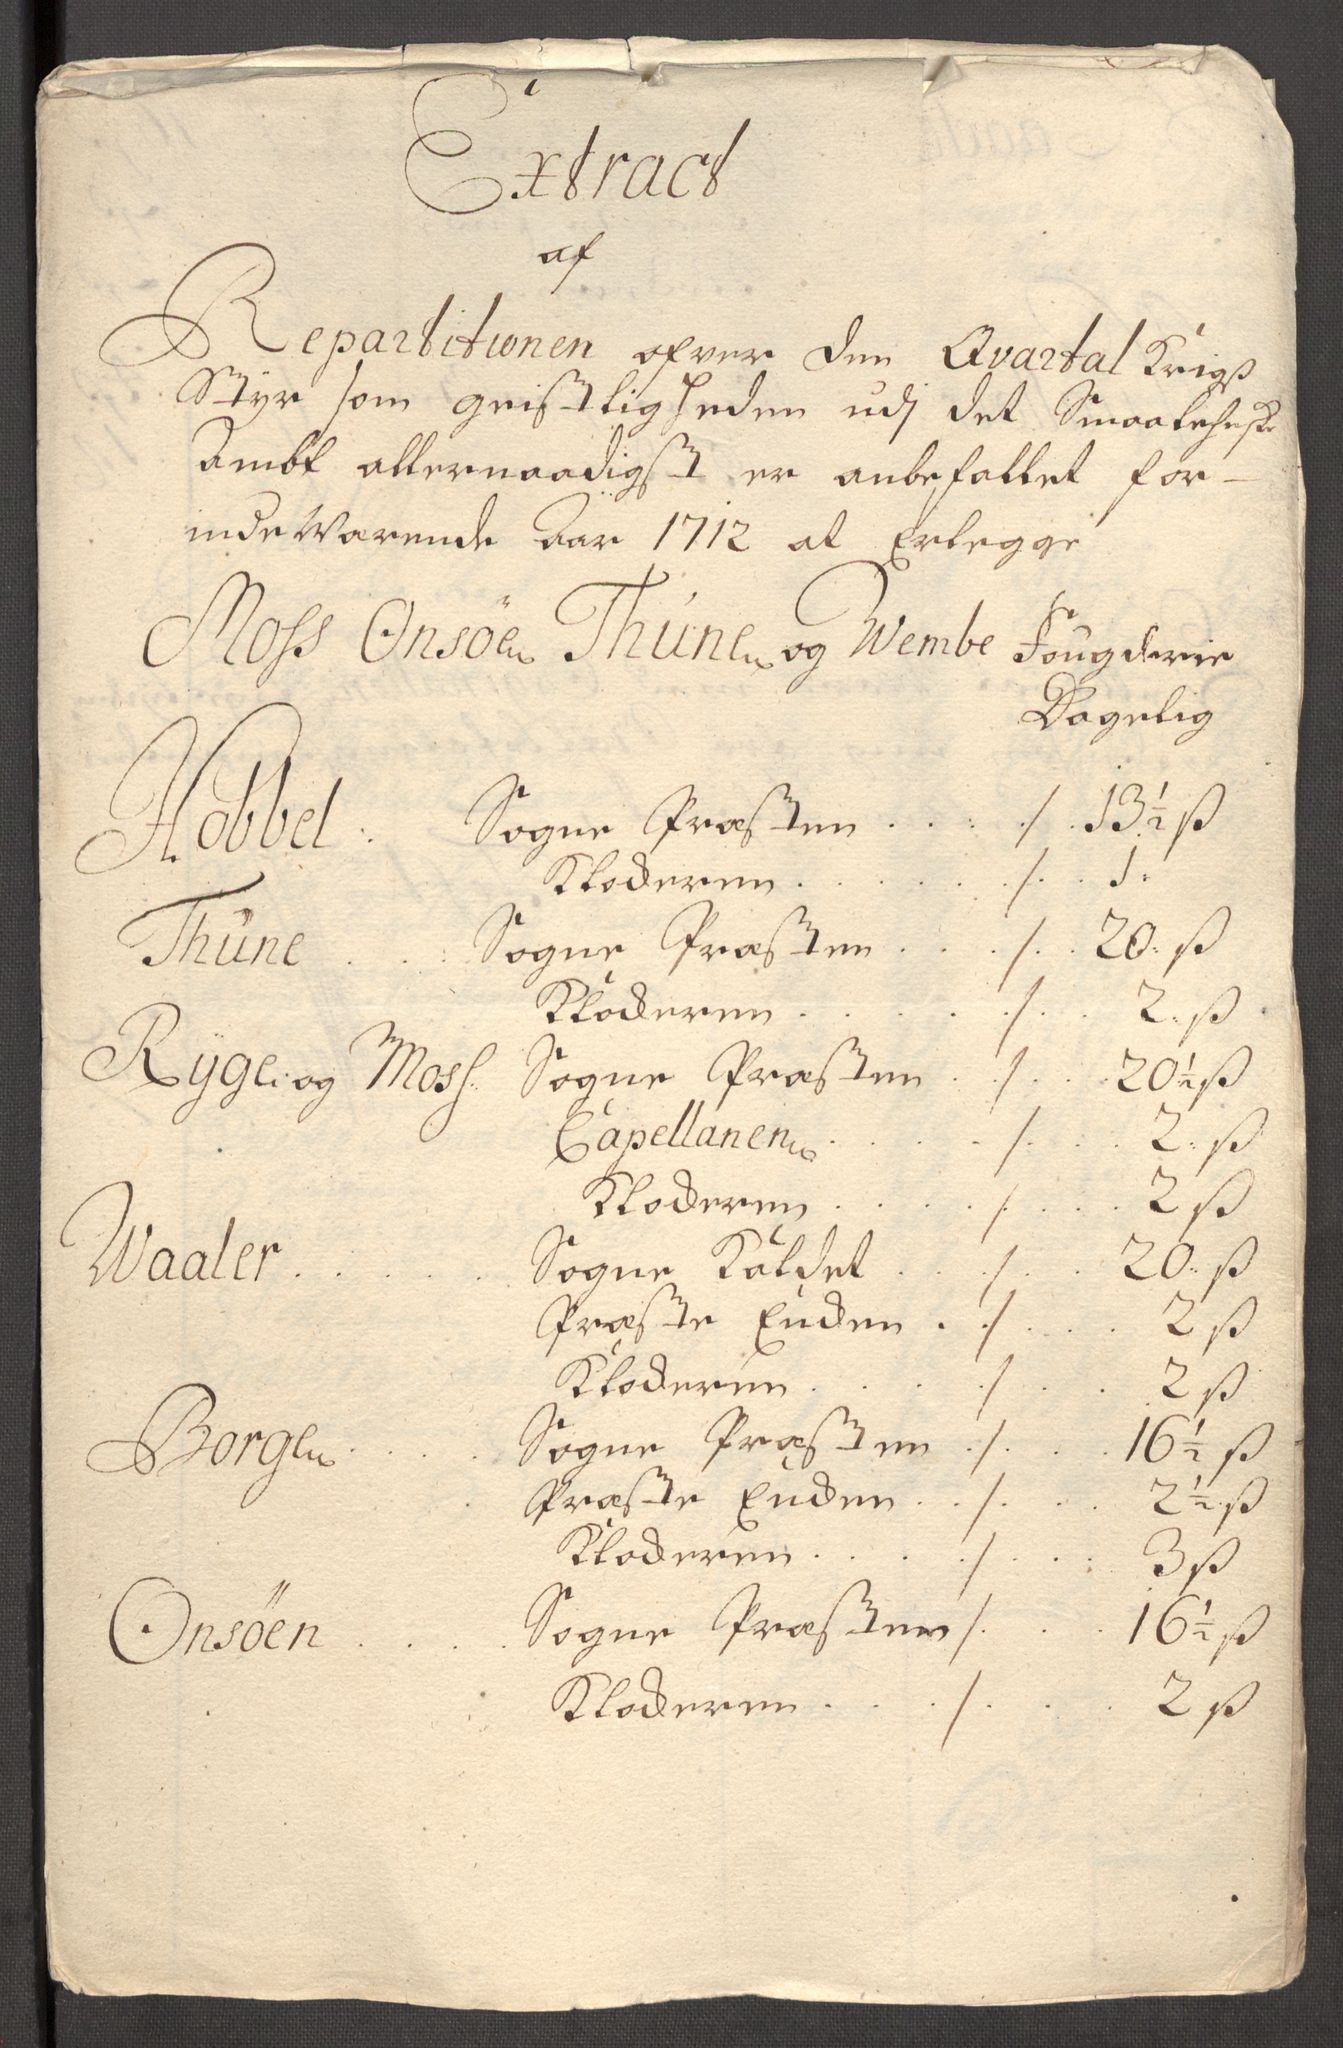 Extract
af
Repartitionen ofver den Qvartal Krigs
Styr som geistligheden udj det Smaalehnske
Ambt allernaadigst er anbefallet for
indeWærende Aar 1712 at Erlegge
Moss Onsöe Thüne og Wembe Fougderie
Dagelig
Hobbel: Sogne Præsten . . . . /. 13 1/2 ß
Klockeren . . . . . /. . 1:
Thüne . . . Sogne Præsten . . . /. . 20: ß
Klockeren . . . . . /. . . 2: ß
Rÿge: og Moss: Sogne Præsten . . /. . . 20 1/2 ß
Capellanen . . . . . /. . . . 2: ß
Klockeren . . . . . /. . . . 2 ß
Waaler . . . . . . Sogne Kaldet . . . /. . . 20: ß
Præste Encken . . /. . . . 2 ß
Klockeren . . . . /. . . . 2 ß
Borge . . . . Sogne Præsten . /. . . . 16 1/2 ß
. Præste Encken . . /. . . . 2 1/2 ß
Klockeren . . . . /. . . . 3 ß
Onsöen . . . . . Sogne Præsten /. . . . 16 1/2 ß
Klockeren . . . . /. . . . 2 ß